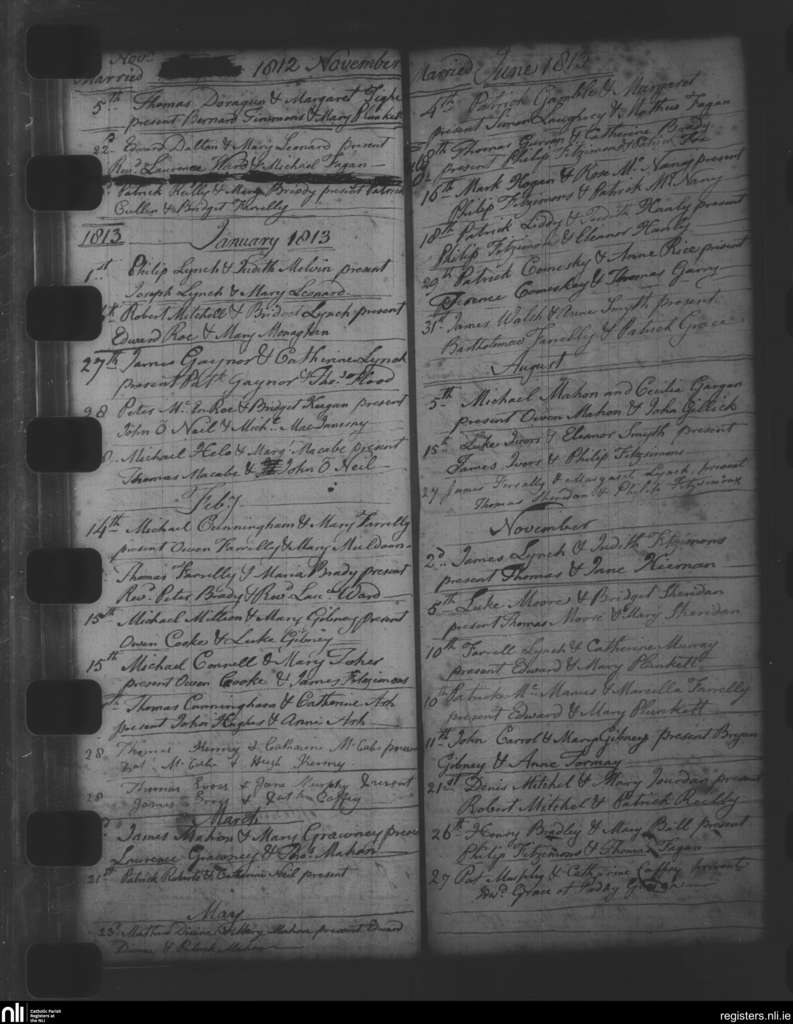 Nov.
Married 1812 November
5th Thomas Doragun & Margaret Tighe
present Bernard Timmons & Mary Plunket
22d Edward Dalton & Mary Leonard present
Revd. Laurence Ward & Michael Fagan
Patrick Reilly & Mary Briody present Patrick
Cullen & Bridget Farrelly
1813 January 1813
1st Philip Lynch & Judith Melvin present
Joseph Lynch & Mary Leonard
Robert Mitchell & Bridget Lynch present
Edward Roe & Mary Monaghan
27th James Gaynor & Catherine Lynch
present Patk. Gaynor & Thos. Flood
28 Peter Mc EnRoe & Bridget Keegan present
John O Neil & Michl.
8 Michael Holo & Mary Macabe present
Thomas Macabe & John O Neil
Feby
14th Michael Cunningham & Mary Farrelly
present Owen Farrelly & Mary Muldoon
Thomas Farrelly & Maria Brady present
Revd. Peter Brady & Revd. Lau. Ward
15th Michael & Mary Gibney present
Owen Cooke & Luke Gibney
15th Michael Connell & Mary Toher
present Owen Cooke & James Fitzsimons
Thomas Cunningham & Catherine Ash
present John Hughes & Anne Ash
28 Thomas Kenny & Catharine Mc Cabe present
Pat Mc Cabe & Hugh Kenny
28 Thomas & Jane Murphy present
James & Caffry
March
James Mahon & Mary Grawney present
Lawrence Grawney & Thos. Mahon
21st Patrick Roberts & Catherine Neil present
May
23d Mathew & Mary Mahon present Edward
& Patrick
Married June 1813
4th Patrick Gamble & Margaret
present Simon & Mathew Fagan
Thomas & Catherine Brady
present Philip Fitzsimons &
16th Mark Hogan & Rose Mc Nany present
Philip Fitzsimons & Patrick Mc Nany
18th Patrick Liddy & Judith Hanly present
Philip Fitzsimons & Eleanor Hanly
29th Patrick Comesky & Anne Rice present
Terence Comeskey & Thomas Garry
31st James Walsh & Anne Smyth present
Bartholomew Farrelly & Patrick Grace
August
5th Michael Mahon and Cecilia Gargan
present Owen Mahon & John Gillick
15th Luke Ivors & Eleanor Smyth present
James Ivors & Philip Fitzsimons
27 James Farrally & Margaret Lynch present
Thomas Sheridan & Philip Fitzsimons
November
2d. James Lynch & Judith Fitzsimons
present Thomas & Jane Kiernan
5th Luke Moore & Bridget Sheridan
present Thomas Moore & Mary Sheridan
10th Farrell Lynch & Catherine Murray
present Edward & Mary Plunkett
10th Patrick Mc Manus & Marcella Farrelly
present Edward & Mary Plunkett
11th John Carrol & Mary Gibney present Bryan
Gibney & Anne Tormay
21st Denis Mitchel & Mary Jourdan present
Robert Mitchel & Patrick Reilly
26th Henry Bradley & Mary Bell present
Philip Fitzsimons & Thomas Fagan
27 Pat Murphy & Catherine Caffry present
Revd. Grace
nli
Catholic Parish
Registers at
the NLI
registers.nli.ie